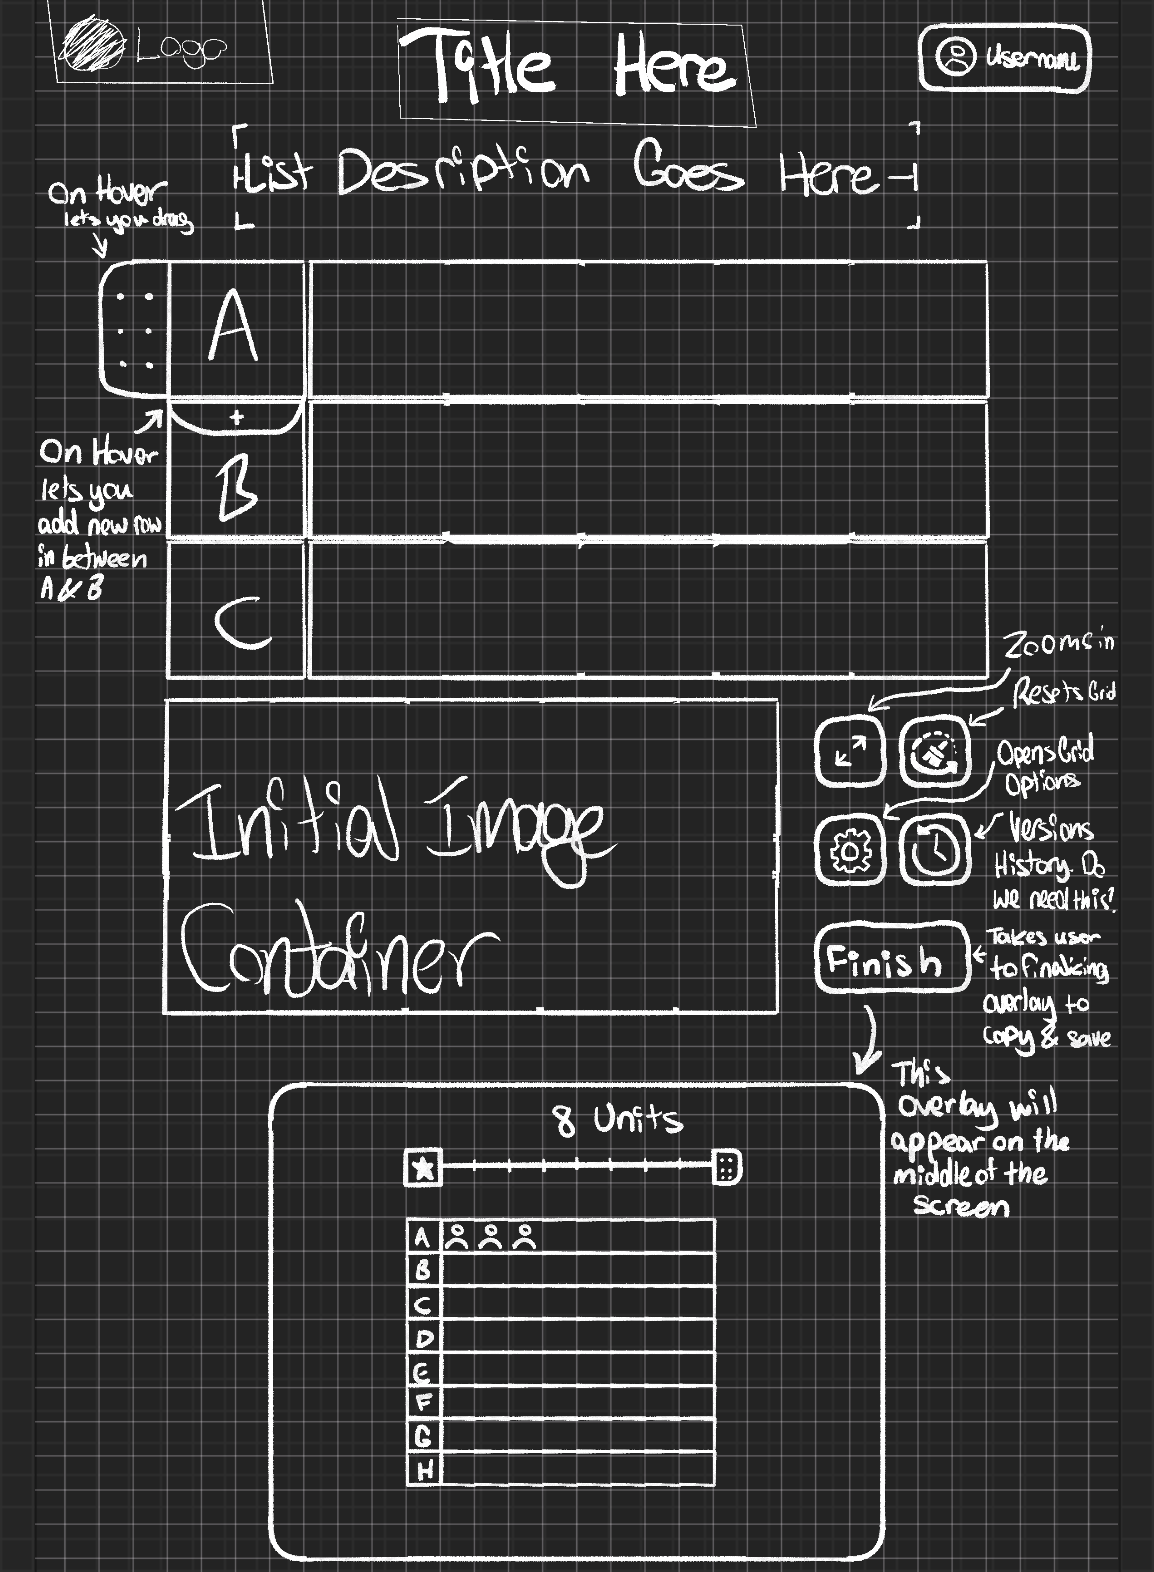 Logo
Title Here
Username
List Desription Goes Here
On Hover
lets you drag
A
+
On Hover
lets you
add new row
in between
A & B
B
C
Zooms in
Resets Grid
Opens Grid
Options
Versions
History. Do
we need this?
Initial Image
Container
Finish
Takes user
to finalizing
overlay to
copy & save
This
overlay will
appear on the
middle of the
screen
8 Units
A
B
C
D
E
F
G
H